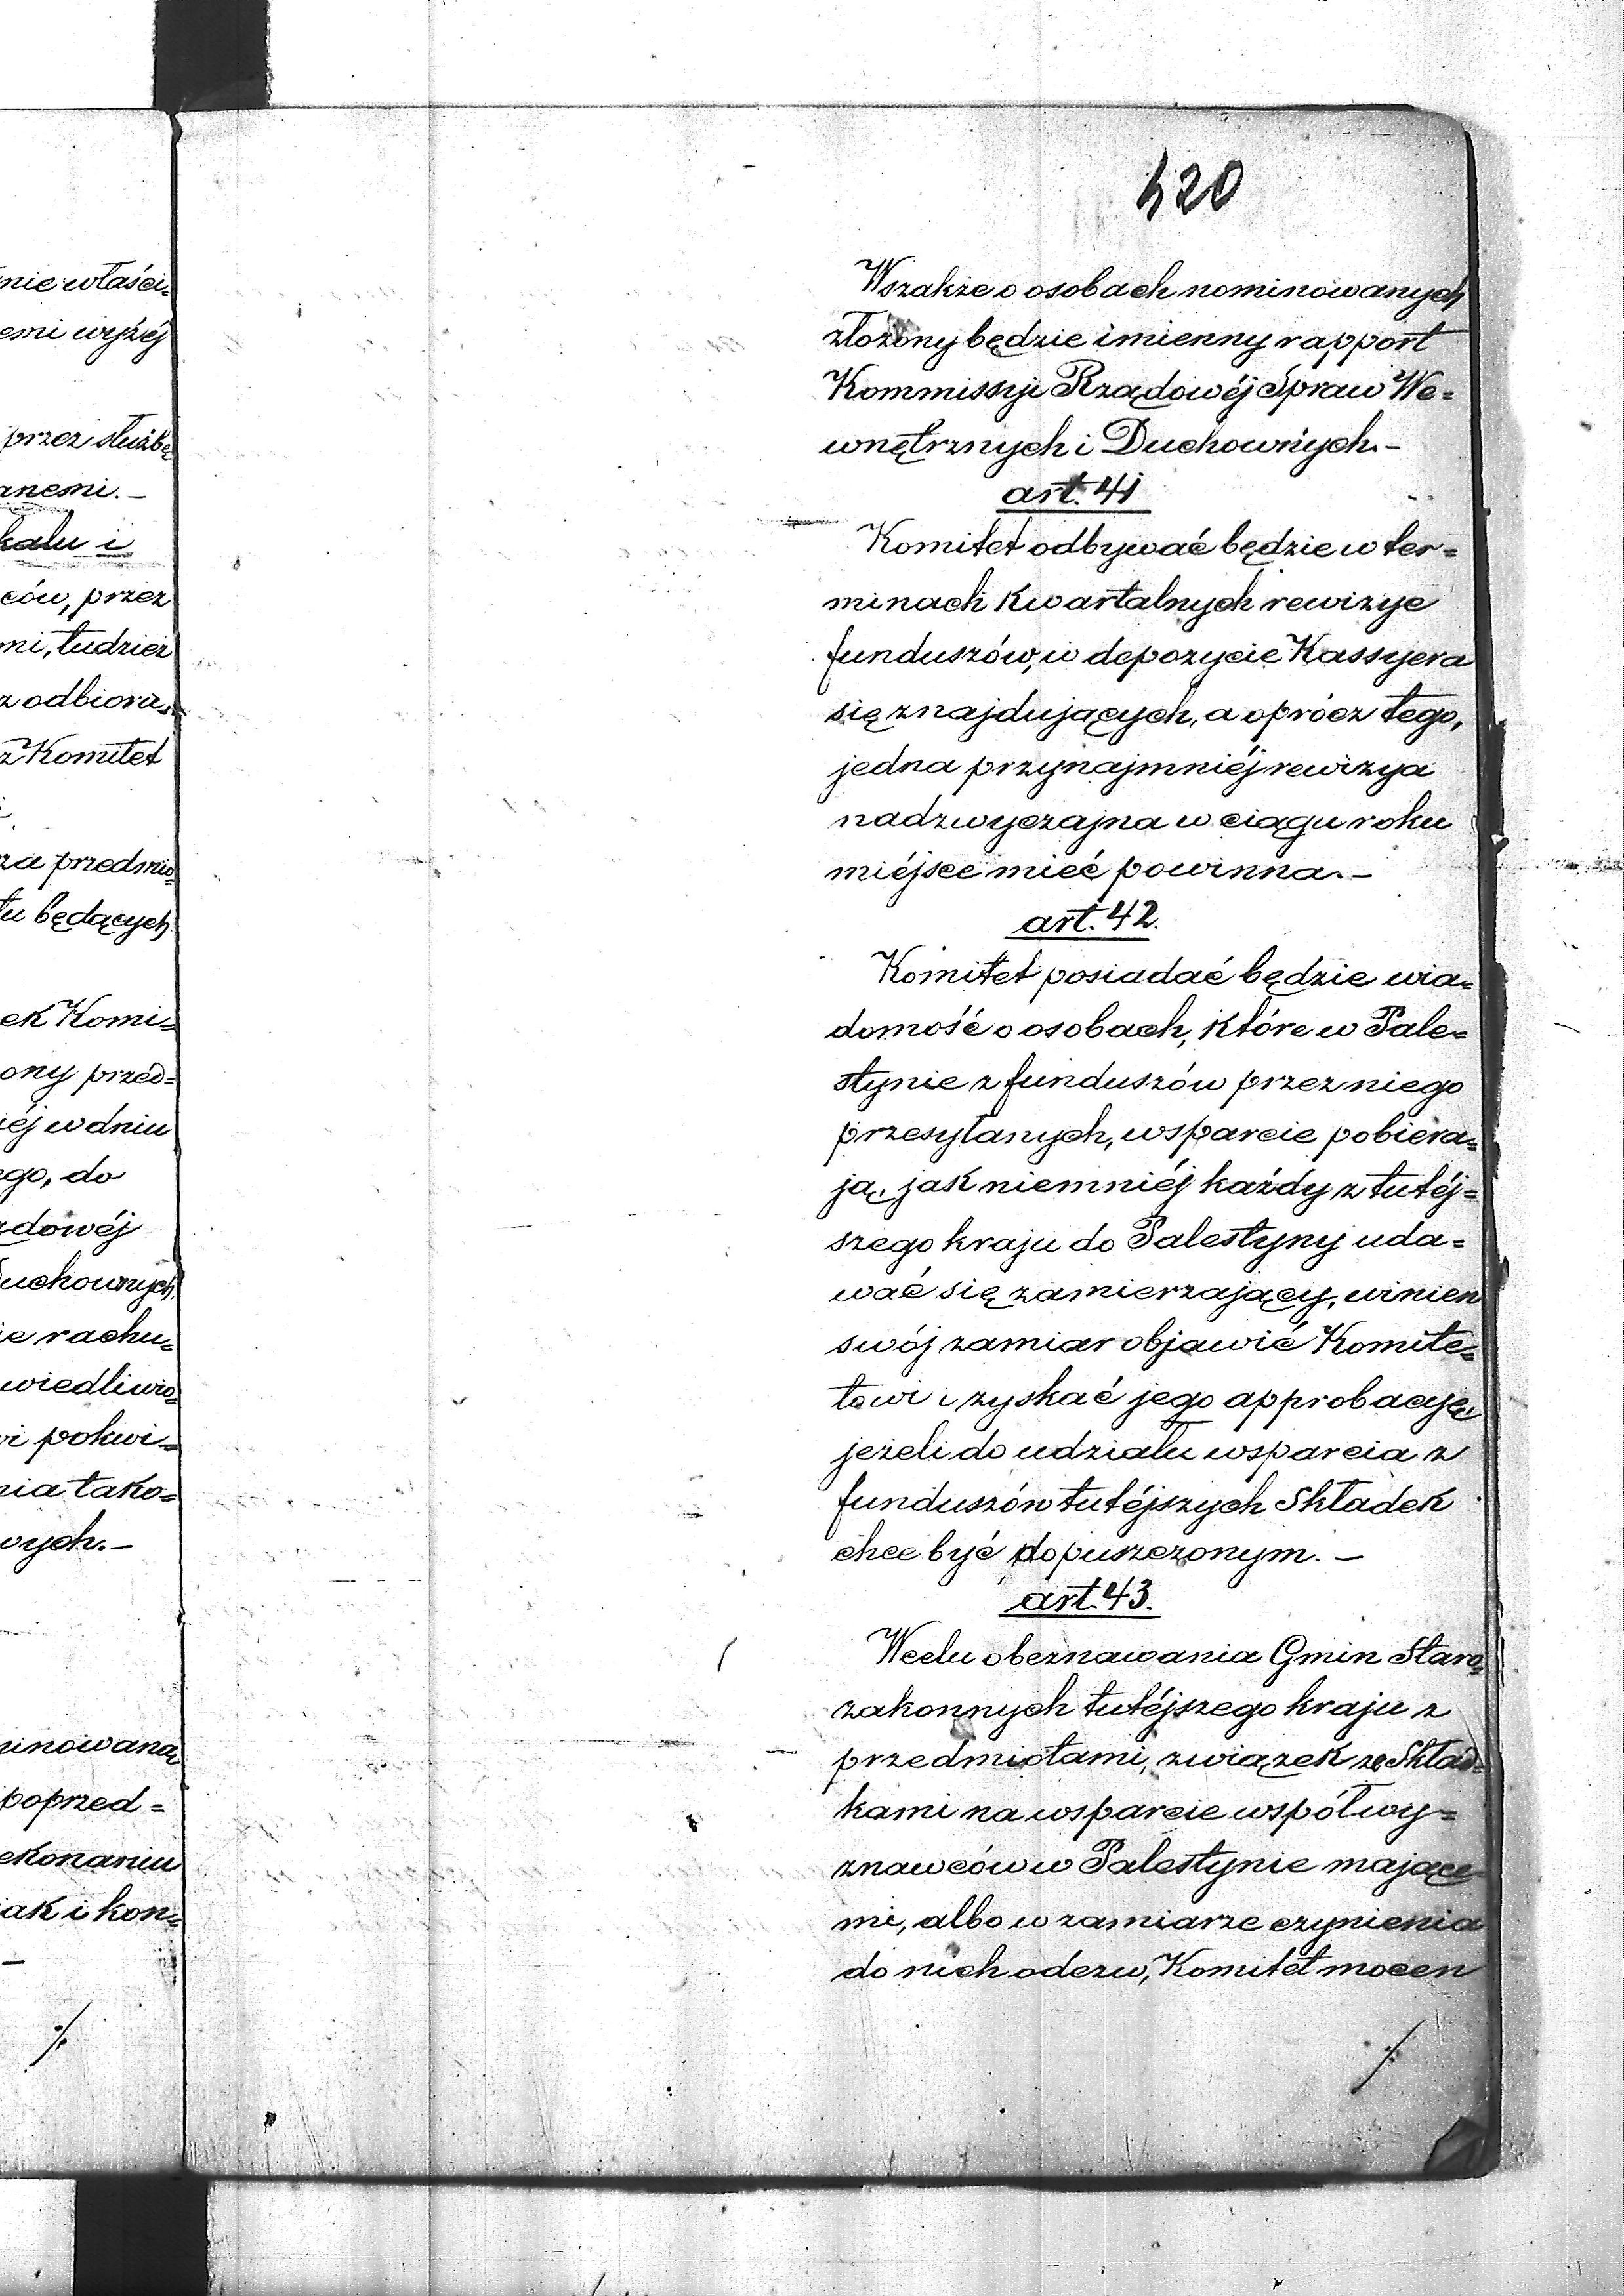 nie właści=
emi wyżéj
przez służbę
anemi.—
kalu i
ców, przez
mi, tudzież
z odbiora=
z Komitet
za przedmio=
tu będących
ek Komi=
ony przed=
iéj w dniu
ego, do
ądowéj
Duchownych
ie rachu=
wiedliwio=
i pokwi=
nia tako=
wych.—
minowaną
poprzed=
ekonaniu
jak i kon=
—
⁒
420
Wszakże o osobach nominowanych
złożony będzie imienny rapport
Kommissyi Rządowéj Spraw We=
wnętrznych i Duchownych.—
art. 41
Komitet odbywać będzie w ter=
minach kwartalnych rewizye
funduszów, w depozycie Kassyera
się znajdujących, a oprócz tego,
jedna przynajmniéj rewizya
nadzwyczajna w ciągu roku
miéjsce mieć powinna.—
art. 42.
Komitet posiadać będzie wia=
domość o osobach, które w Pale=
stynie z funduszów przez niego
przesyłanych, wsparcie pobiera=
ją, jak niemniéj każdy z tutéj=
szego kraju do Palestyny uda=
wać się zamierzający, winien
swój zamiar objawić Komite=
towi i zyskać jego approbacyę,
jeżeli do udziału wsparcia z
funduszów tutéjszych Składek
chce być dopuszczonym.—
art. 43.
W celu obeznawania Gmin Staro=
zakonnych tutéjszego kraju z
przedmiotami, związek ze Skład=
kami na wsparcie współwy=
znawców w Palestynie mające=
mi, albo w zamiarze czynienia
do nich odezw, Komitet mocen
⁒